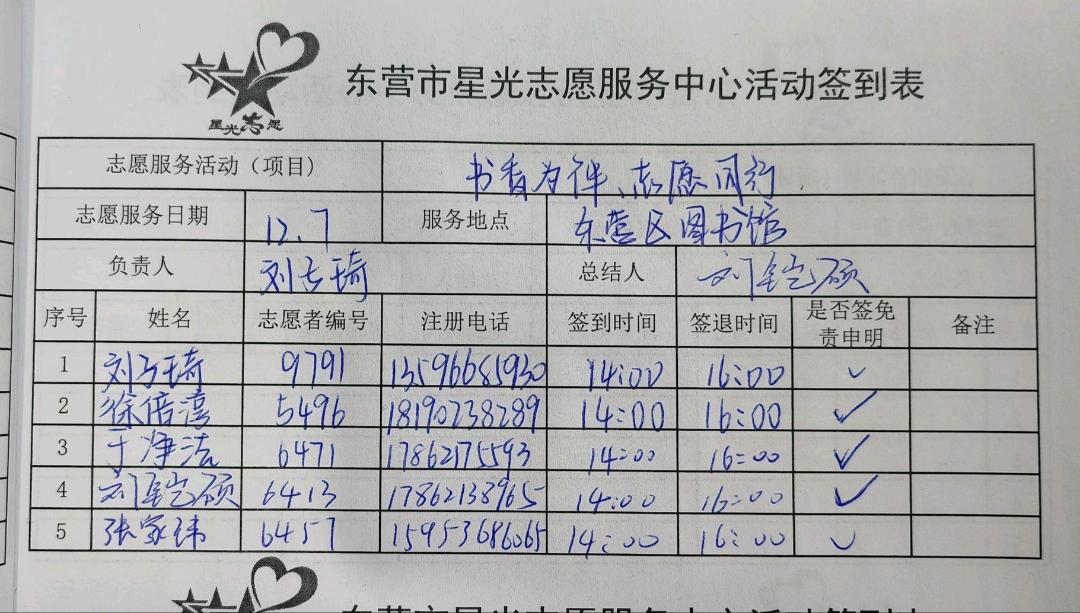 星光志愿
东营市星光志愿服务中心活动签到表
志愿服务活动（项目） 书香为伴、志愿同行
志愿服务日期 12.7 服务地点 东营区图书馆
负责人 刘子琦 总结人 刘
序号 姓名 志愿者编号 注册电话 签到时间 签退时间 是否签免责申明 备注
1 刘子琦 9791 13596685930 14:00 16:00 ✓
2 徐倍 5496 18190238289 14:00 16:00 ✓
3 于净洁 6471 17862175593 14:00 16:00 ✓
4 刘 6413 17862138965 14:00 16:00 ✓
5 张家玮 6457 15953686065 14:00 16:00 ✓
东营市星光志愿服务中心活动签到表